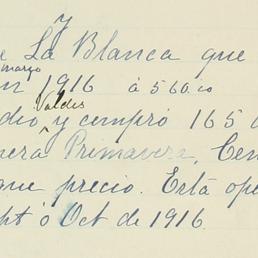 y
La Blanca que
marzo
1916 á 560.00
Valdes
dio y compró 165 a
nera Primavera, Cen
que precio. Está ope
pt ó Oct de 1916.